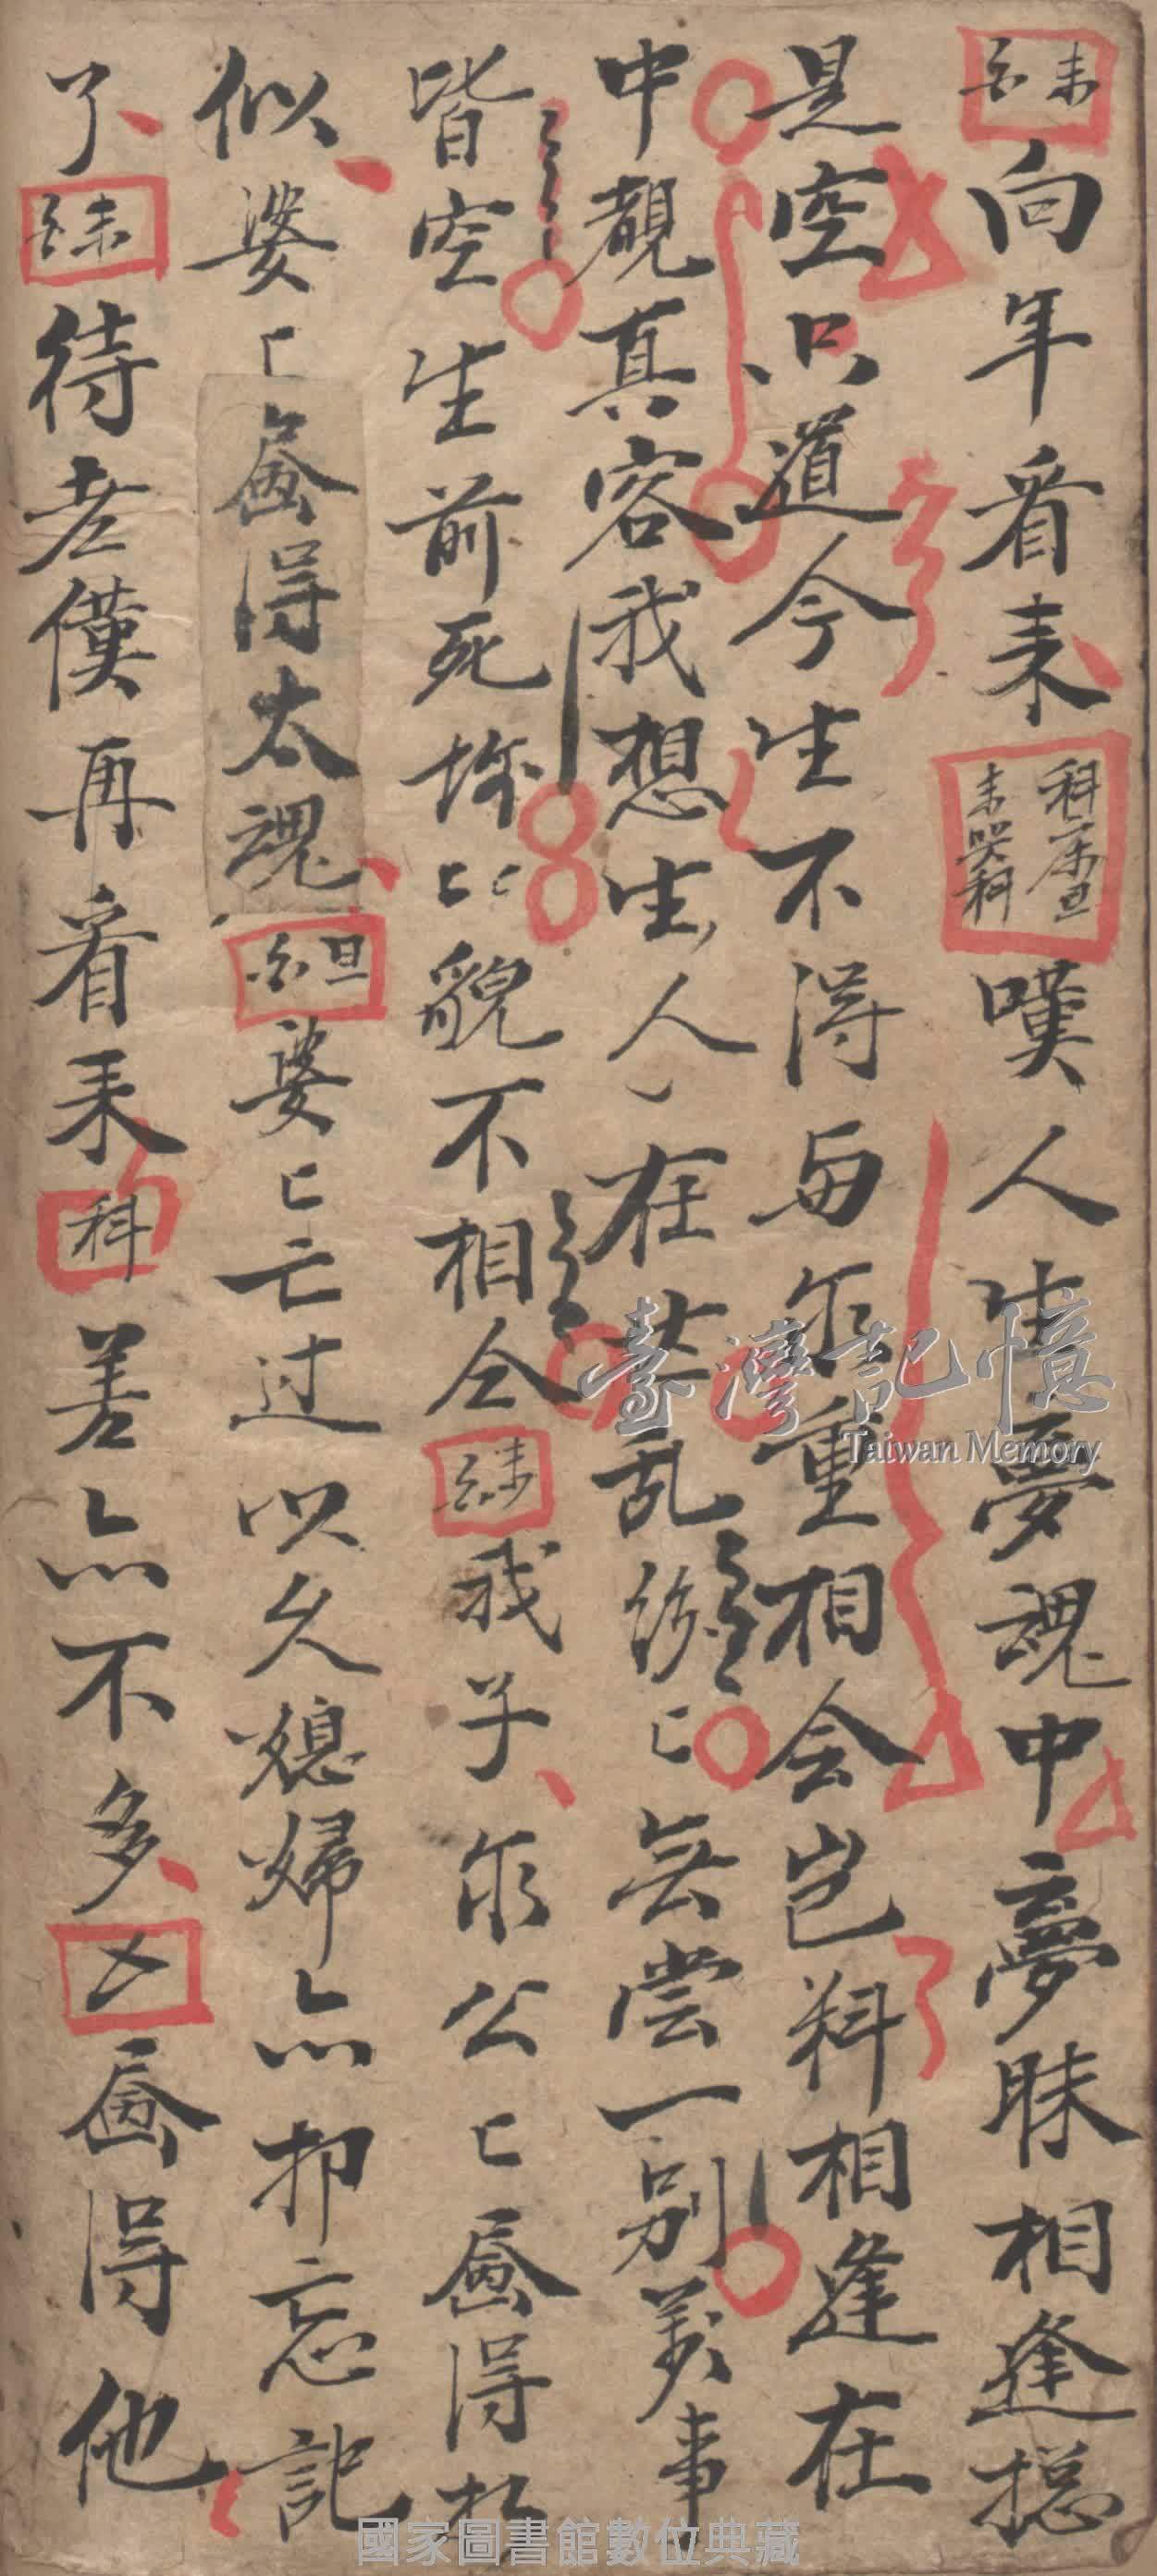 末白向年看来科介旦末哭科嘆人生夢魂中夢昧相逢捴
是空只道今生不得與尔重相会岂料相逢在在
中覩真容我想生人在世乱纷匕無常一别萬事
皆空生前死後匕匕貌不相仝末白我子尔公匕画得
似婆匕画得太魂旦白婆匕亡过以久媳婦亦抑忘記
了末白待老僕再看来科差亦不多画得他
臺灣記憶
Taiwan Memory
國家圖書館數位典藏